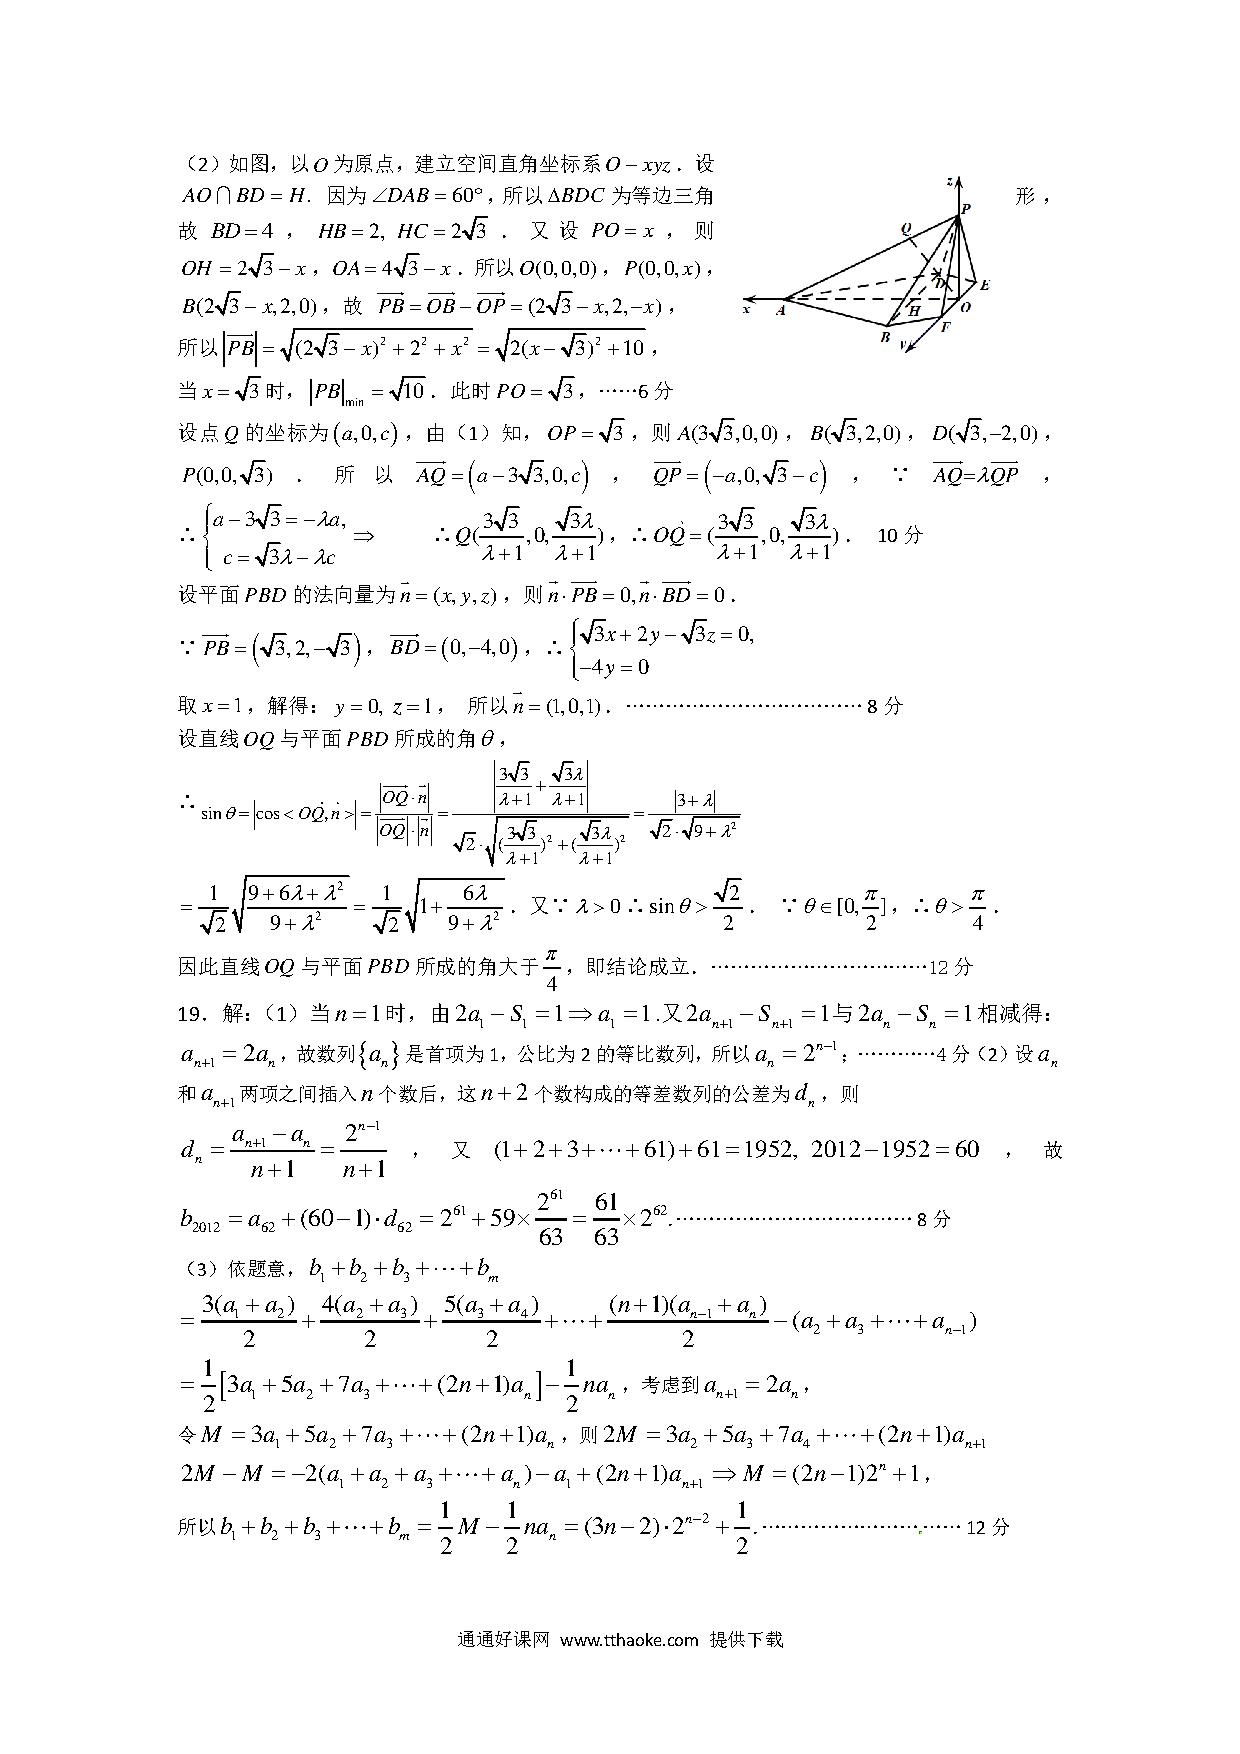 （2）如图，以O为原点，建立空间直角坐标系O－xyz．设
AO∩BD＝H．因为∠DAB＝60°，所以ΔBDC为等边三角形，
故 BD＝4 ， HB＝2, HC＝2√3 ．又设 PO＝x ，则
OH＝2√3－x，OA＝4√3－x．所以O(0,0,0)，P(0,0,x)，
B(2√3－x,2,0)，故 PB＝OB－OP＝(2√3－x,2,－x)，
所以|PB|＝√((2√3－x)²＋2²＋x²)＝√(2(x－√3)²＋10)，
当x＝√3时，|PB|min＝√10．此时PO＝√3，……6分
z
P
Q
D
E
x
A
H
O
B
F
y
设点Q的坐标为(a,0,c)，由（1）知，OP＝√3，则A(3√3,0,0)，B(√3,2,0)，D(√3,－2,0)，
P(0,0,√3) ． 所以 AQ＝(a－3√3,0,c) ， QP＝(－a,0,√3－c) ， ∵ AQ=λQP ，
∴{a－3√3＝－λa, c＝√3λ－λc ⇒ ∴Q(3√3/(λ+1),0,√3λ/(λ+1))，∴OQ＝(3√3/(λ+1),0,√3λ/(λ+1))． 10分
设平面PBD的法向量为n＝(x,y,z)，则n·PB＝0,n·BD＝0．
∵PB＝(√3,2,－√3)，BD＝(0,－4,0)，∴{√3x＋2y－√3z＝0, －4y＝0
取x＝1，解得：y＝0, z＝1， 所以n＝(1,0,1)．………………………………8分
设直线OQ与平面PBD所成的角θ，
∴sinθ＝|cos<OQ,n>|＝|OQ·n|/(|OQ|·|n|)＝|3√3/(λ+1)＋√3λ/(λ+1)|/(√2·√((3√3/(λ+1))²＋(√3λ/(λ+1))²))＝|3＋λ|/(√2·√(9＋λ²))
＝(1/√2)√((9＋6λ＋λ²)/(9＋λ²))＝(1/√2)√(1＋6λ/(9＋λ²))．又∵λ>0∴sinθ>√2/2． ∵θ∈[0,π/2]，∴θ>π/4．
因此直线OQ与平面PBD所成的角大于π/4，即结论成立．……………………………12分
19．解：（1）当n＝1时，由2a₁－S₁＝1⇒a₁＝1.又2aₙ₊₁－Sₙ₊₁＝1与2aₙ－Sₙ＝1相减得：
aₙ₊₁＝2aₙ，故数列{aₙ}是首项为1，公比为2的等比数列，所以aₙ＝2ⁿ⁻¹；…………4分（2）设aₙ
和aₙ₊₁两项之间插入n个数后，这n＋2个数构成的等差数列的公差为dₙ，则
dₙ＝(aₙ₊₁－aₙ)/(n＋1)＝2ⁿ⁻¹/(n＋1) ， 又 (1＋2＋3＋⋯＋61)＋61＝1952, 2012－1952＝60 ， 故
b₂₀₁₂＝a₆₂＋(60－1)·d₆₂＝2⁶¹＋59×2⁶¹/63＝61/63×2⁶².………………………………8分
（3）依题意，b₁＋b₂＋b₃＋⋯＋bₘ
＝3(a₁＋a₂)/2＋4(a₂＋a₃)/2＋5(a₃＋a₄)/2＋⋯＋(n＋1)(aₙ₋₁＋aₙ)/2－(a₂＋a₃＋⋯＋aₙ₋₁)
＝1/2[3a₁＋5a₂＋7a₃＋⋯＋(2n＋1)aₙ]－1/2naₙ，考虑到aₙ₊₁＝2aₙ，
令M＝3a₁＋5a₂＋7a₃＋⋯＋(2n＋1)aₙ，则2M＝3a₂＋5a₃＋7a₄＋⋯＋(2n＋1)aₙ₊₁
2M－M＝－2(a₁＋a₂＋a₃＋⋯＋aₙ)－a₁＋(2n＋1)aₙ₊₁⇒M＝(2n－1)2ⁿ＋1，
所以b₁＋b₂＋b₃＋⋯＋bₘ＝1/2M－1/2naₙ＝(3n－2)·2ⁿ⁻²＋1/2.…………………………12分
通通好课网 www.tthaoke.com 提供下载